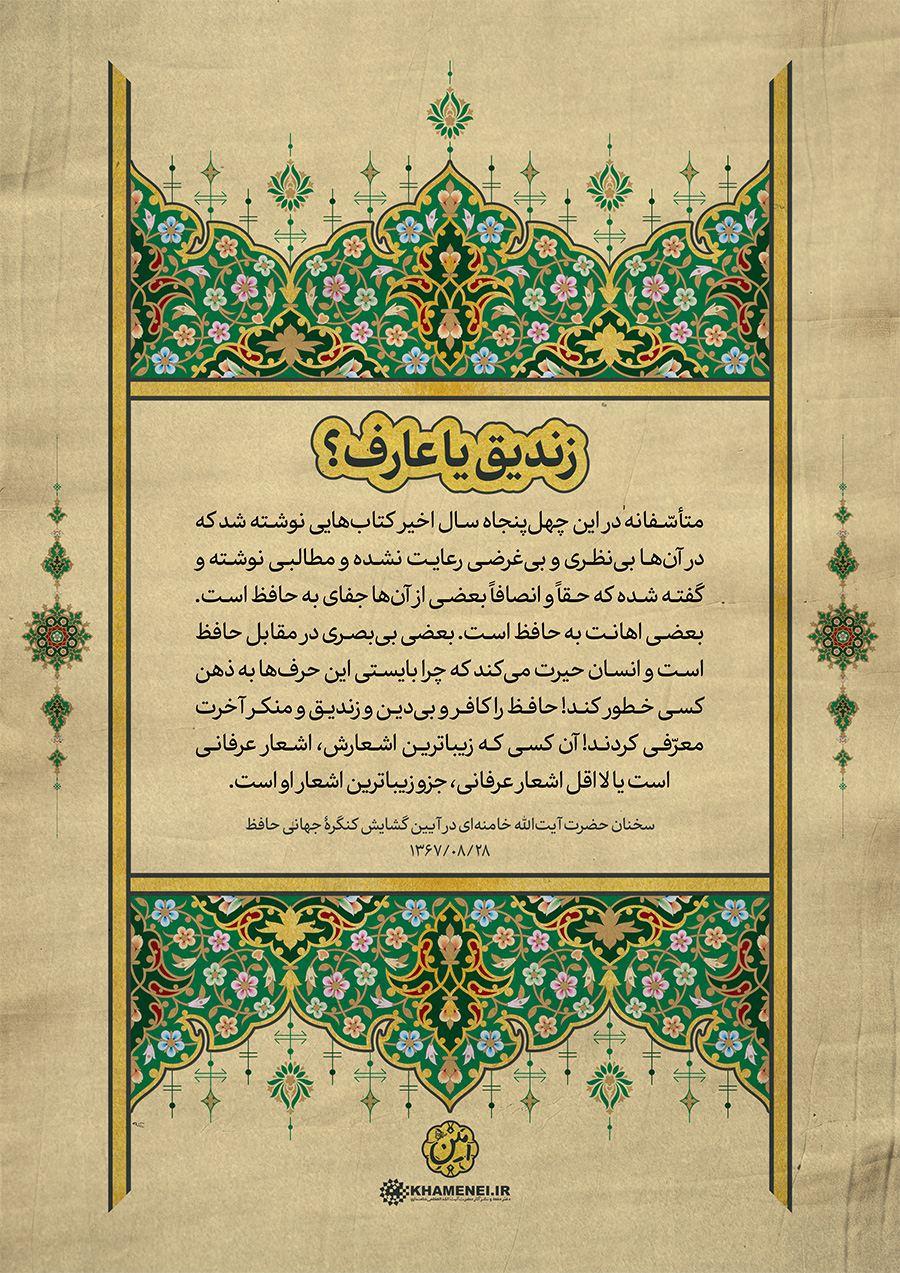 زندیق یا عارف؟
متأسّفانه در این چهل‌پنجاه سال اخیر کتاب‌هایی نوشته شد که
در آن‌ها بی‌نظری و بی‌غرضی رعایت نشده و مطالبی نوشته و
گفته شده که حقاً و انصافاً بعضی از آن‌ها جفای به حافظ است.
بعضی اهانت به حافظ است. بعضی بی‌بصری در مقابل حافظ
است و انسان حیرت می‌کند که چرا بایستی این حرف‌ها به ذهن
کسی خطور کند! حافظ را کافر و بی‌دین و زندیق و منکر آخرت
معرّفی کردند! آن کسی که زیباترین اشعارش، اشعار عرفانی
است یا لااقل اشعار عرفانی، جزو زیباترین اشعار او است.
سخنان حضرت آیت‌الله خامنه‌ای در آیین گشایش کنگرهٔ جهانی حافظ
۱۳۶۷/۰۸/۲۸
KHAMENEI.IR